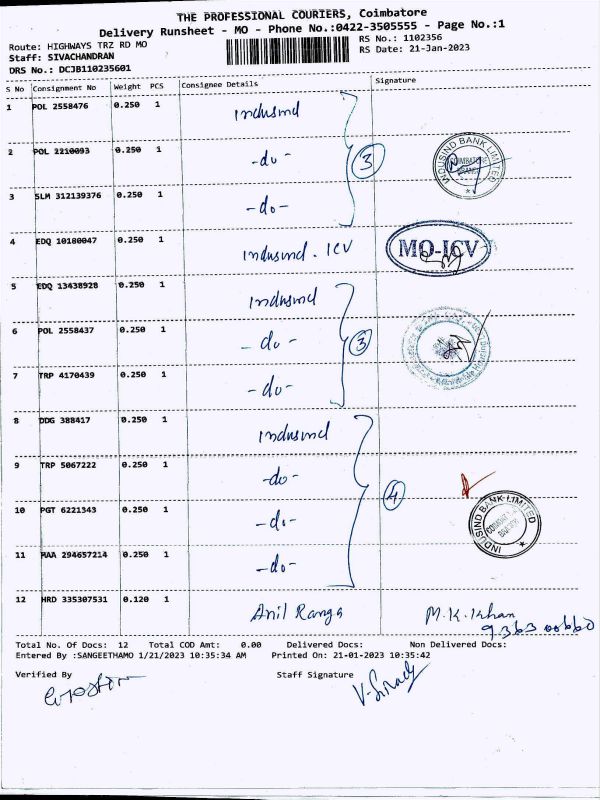 THE PROFESSIONAL COURIERS, Coimbatore
Delivery Runsheet - MO - Phone No.:0422-3505555 - Page No.:1
Route: HIGHWAYS TRZ RD MO
RS No.: 1102356
Staff: SIVACHANDRAN
RS Date: 21-Jan-2023
DRS No.: DCJB110235601
S No Consignment No Weight PCS Consignee Details Signature
1 POL 2558476 0.250 1 Indusind
2 POL 2210093 0.250 1 -do- 3
INDUSIND BANK LIMITED
3 SLM 312139376 0.250 1 -do-
4 EDQ 10180047 0.250 1 Indusind. ICV MO-ICV
5 EDQ 13438928 0.250 1 Indusind
6 POL 2558437 0.250 1 -do- 3
7 TRP 4170439 0.250 1 -do-
8 DDG 388417 0.250 1 Indusind
9 TRP 5067222 0.250 1 -do- 4
10 PGT 6221343 0.250 1 -do-
INDUSIND BANK LIMITED
11 MAA 294657214 0.250 1 -do-
12 HRD 335307531 0.120 1 Anil Ranga M.K.Khan
Total No. Of Docs: 12 Total COD Amt: 0.00 Delivered Docs: Non Delivered Docs:
Entered By :SANGEETHAMO 1/21/2023 10:35:34 AM Printed On: 21-01-2023 10:35:42
Verified By Staff Signature